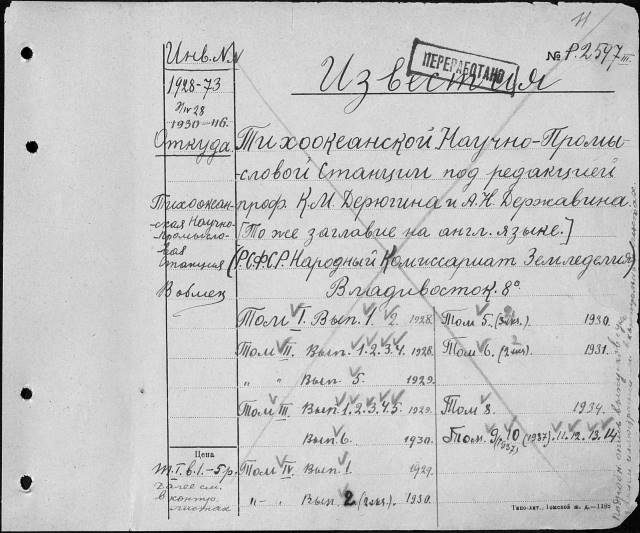 11
Инв. №№
№ Р.2597 III.
ПЕРЕРАБОТАНО
Известия
1928-73
1930-116.
Откуда
Тихоокеанской Научно-Промы-
словой Станции под редакцией
Тихоокеан-
ская Научно-
Промысло-
вая
Станция
проф. К.М. Дерюгина и А.Н. Державина.
[То же заглавие на англ. языке.]
(Р.С.Ф.С.Р. Народный Комиссариат Земледелия)
В обмен
Владивосток. 8°.
Том I. Вып. 1. 2. 1928.
Том 5. (3 экз.) 1930.
Том II. Вып. 1. 2. 3. 4. 1928.
Том 6. (2 экз.) 1931.
" " Вып. 5. 1929.
Том III. Вып. 1. 2. 3. 4. 5. 1929.
Том 8. 1934.
Вып. 6. 1930.
Том. 9, 10 (1937). 11. 12. 13. 14.
Цена
Т. I. в. 1. - 5 р.
Том IV. Вып. 1. 1929.
Далее см.
в контр.
листках
-"- " Вып. 2 (2 экз.) 1930.
Типо-лит. Томской ж. д.—1193